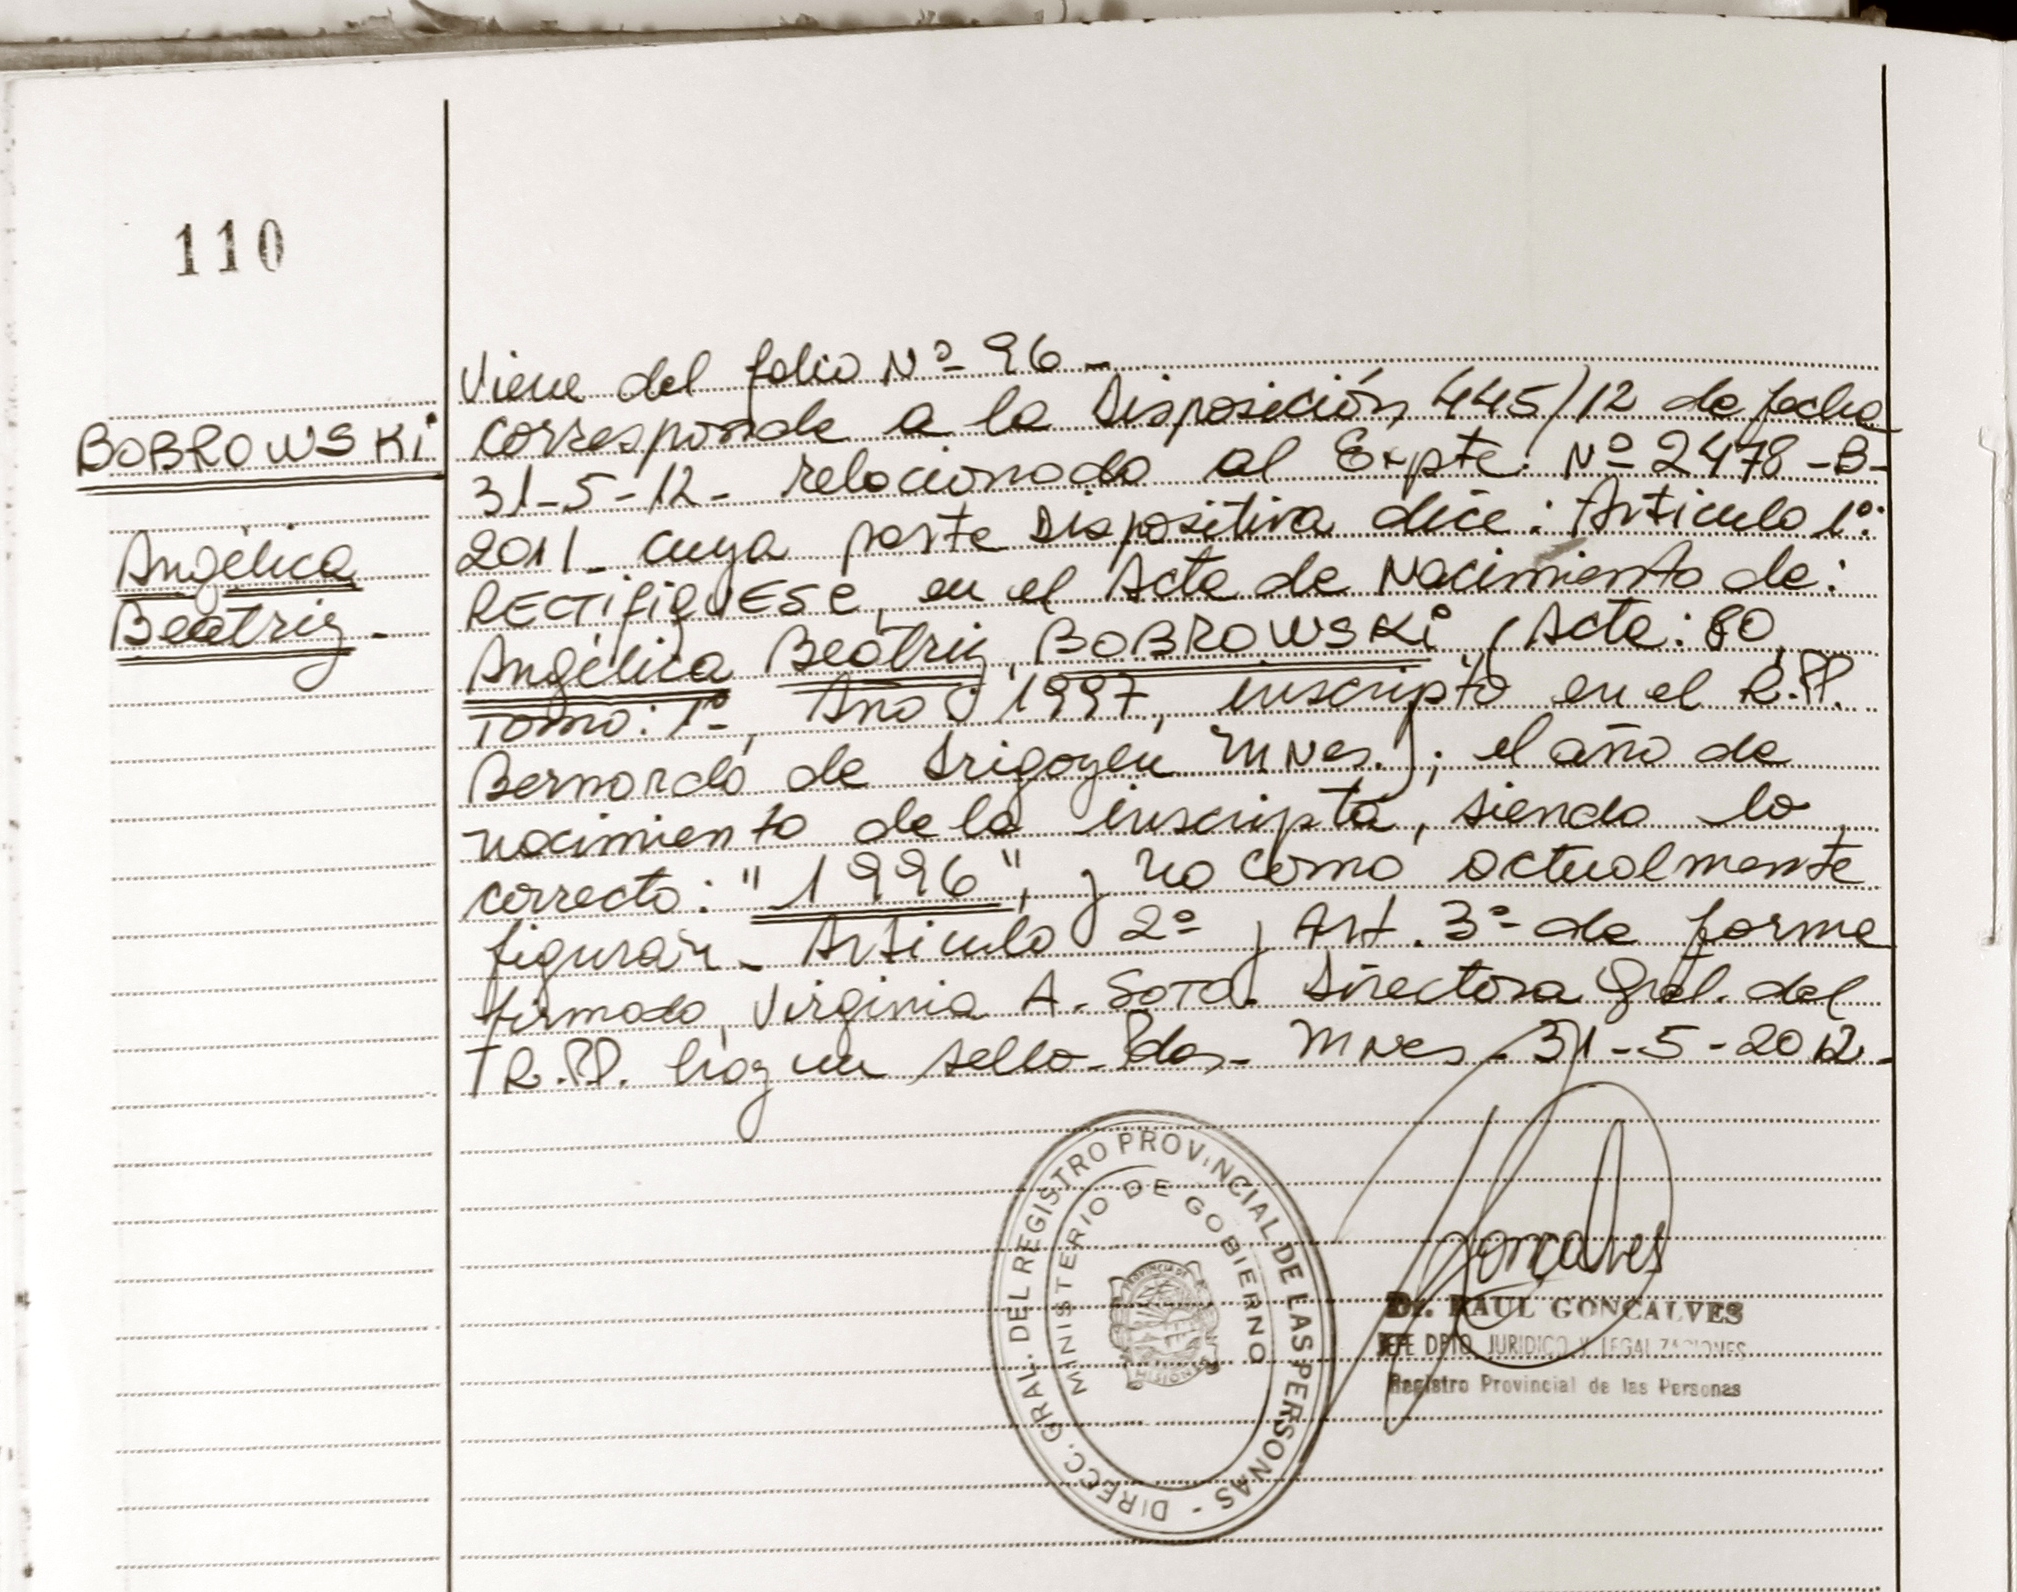 110
BOBROWSKi
Angélica
Beatriz -
Viene del folio Nº 96 -
corresponde a la Disposición 445/12 de fecha
31-5-12- relacionado al Expte. Nº 2478-B-
2011- cuya parte Dispositiva dice: Artículo 1º:
RECTifiqUESE, en el Acta de Nacimiento de:
Angélica Beatriz BOBROWSKi, (Acta: 80,
Tomo: 1º, Año: 1997, inscripto en el R.PP.
Bernardo de Irigoyen Mnes.); el año de
nacimiento de la inscripta, siendo lo
correcto: "1996", y no como actualmente
figura - Artículo 2º y Art. 3º de forma
firmado, Virginia A. Soto. Directora Gral. del
R.PP. hay un sello - Pdas - Mnes - 31-5-2012 -
DIRECC. GRAL. DEL REGISTRO PROVINCIAL DE LAS PERSONAS -
MINISTERIO DE GOBIERNO
PROVINCIA DE
MISIONES
Goncalves
Dr. RAUL GONCALVES
JEFE DPTO. JURIDICO Y LEGALIZACIONES
Registro Provincial de las Personas